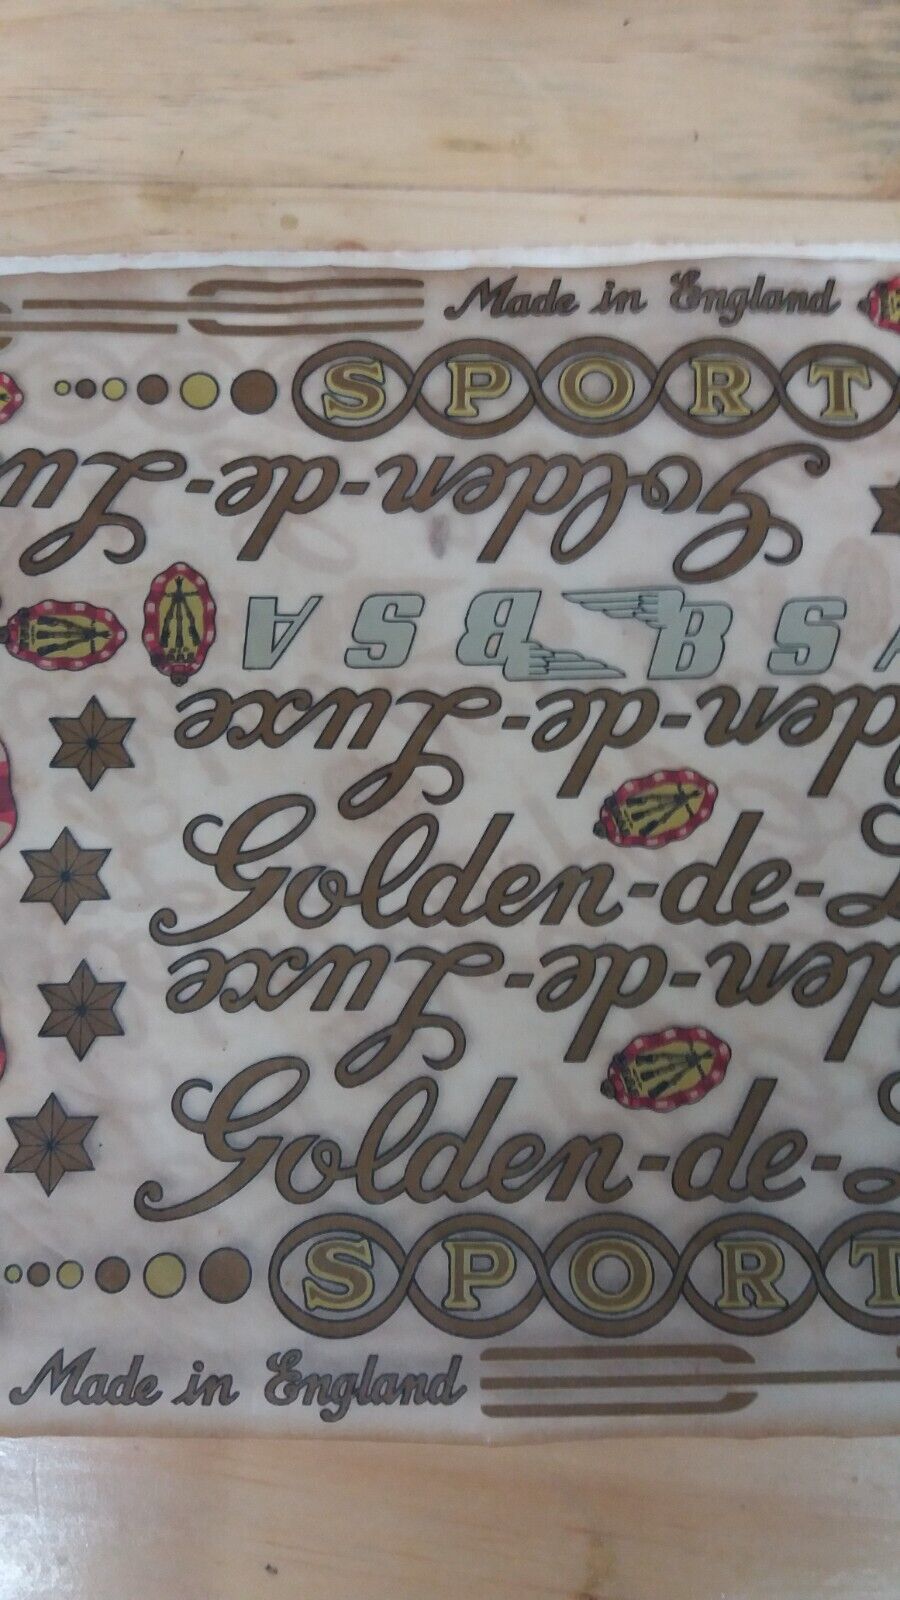 Made in England
SPORT
Golden-de-Lu
BSA
BSA
Golden-de-Luxe
lden-de-Luxe
Golden-de-L
den-de-Luxe
Golden-de-
SPORT
Made in England